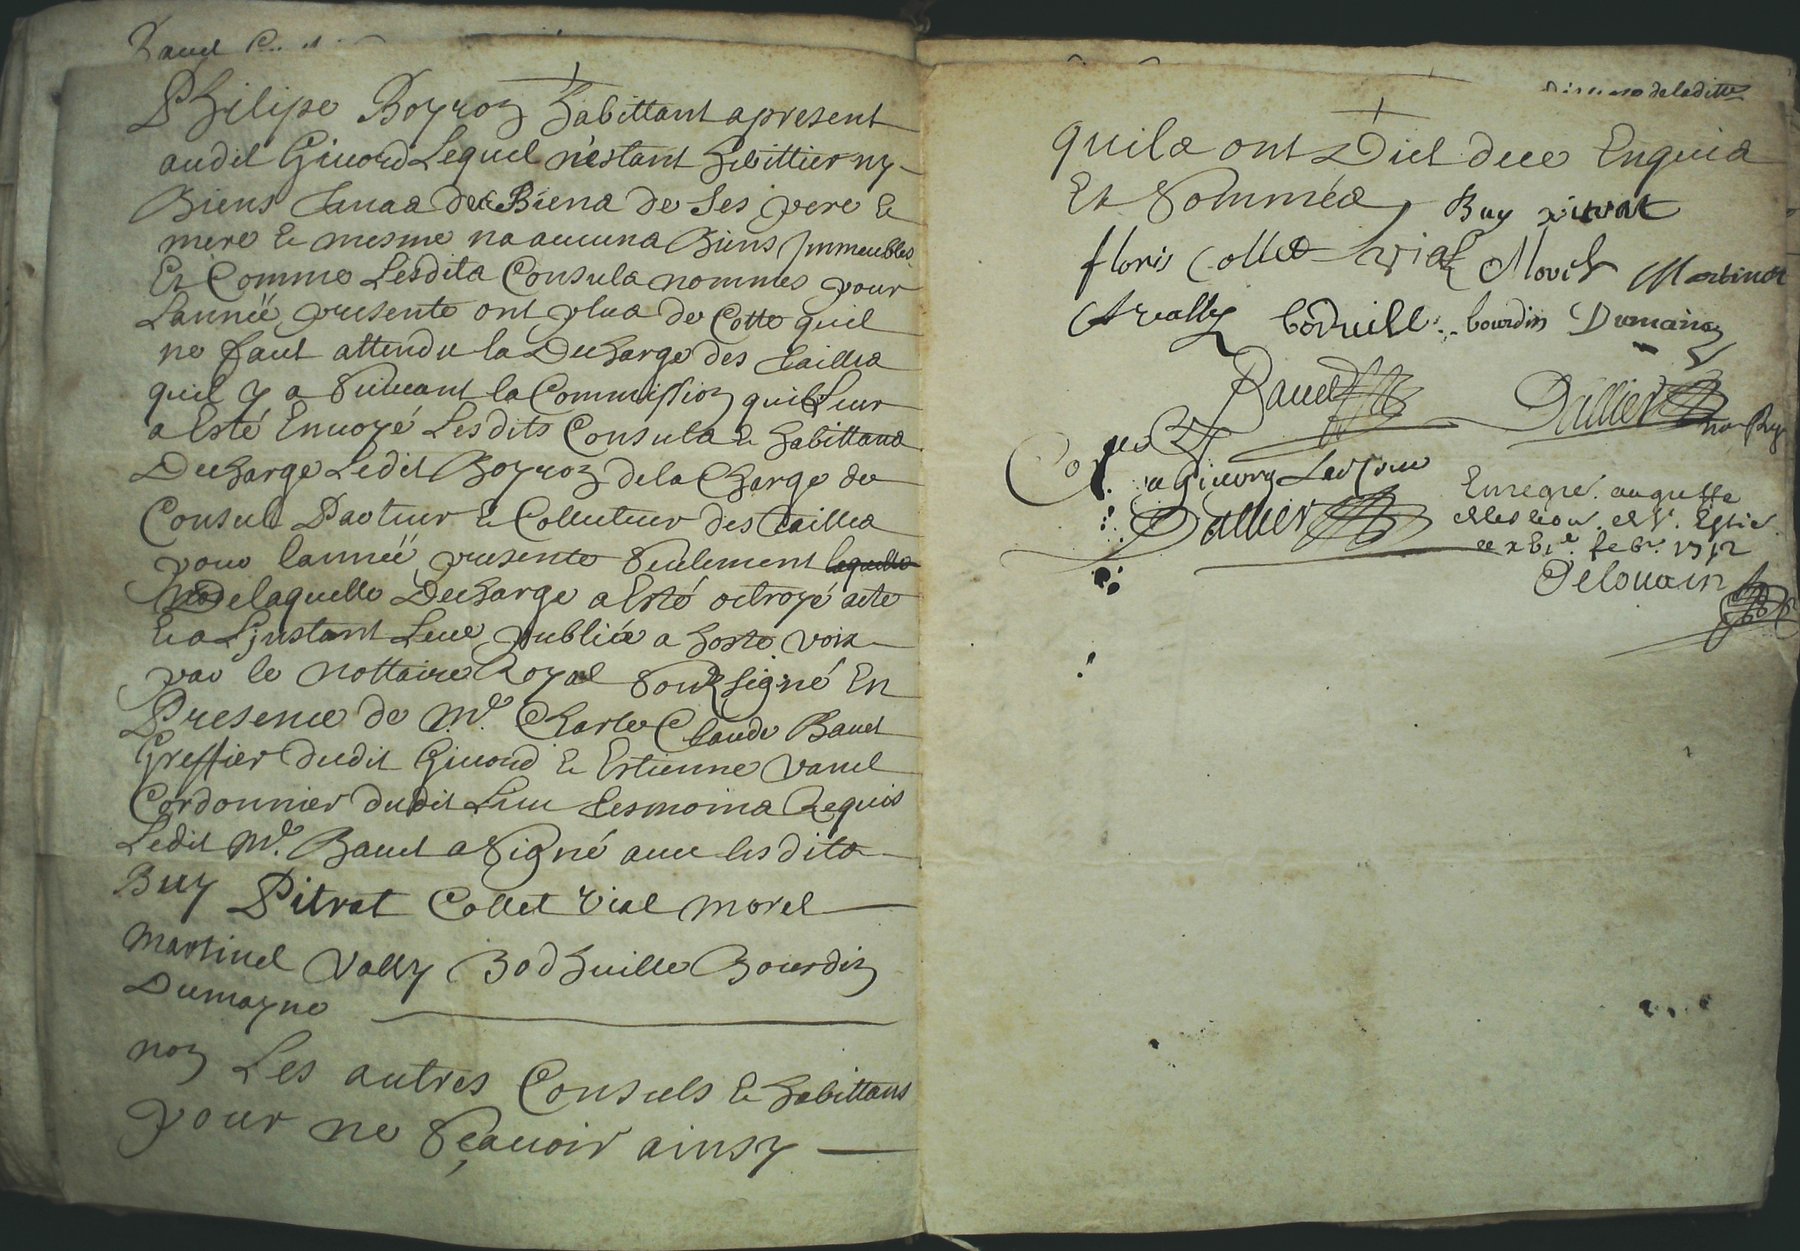 Philipe Boyron habittant apresent
audit Givord Lequel n'estant herittier ny
Biens tenans des Biens de ses pere &
mere & mesme na aucuns Biens Jmmeubles
Et Comme Lesdits Consuls nommes pour
Lanneé presente ont plus de Cotte quil
ne faut attendu la Decharge des tailles
quil y a suivant la Commission qui Leur
a Esté Envoyé Lesdits Consuls & habittans
Decharge Ledit Boyron de la Charge de
Consul Collecteur des tailles
pour lanneé presente seulement
de laquelle Decharge a Esté octroyé acte
& a Ljnstant Leue publiée a hoste voix
par le nottaire Royal soubsigné En
Presence de Me. Charle Claude Bauet
Greffier dudit Givord & Estienne vanel
Cordonnier dudit Lieu tesmoins Requis
Ledit Me. Bauet a signé avec lesdits
Buy Pitrat Collet vial morel
Martinel Vally Bodhuille Bourdin
Dumayne
non Les autres Consuls & habittans
pour ne sçauoir ainsy
de laditte
quils ont Dict de ce Enquis
Et sommés, Buy pitrat
floris Collet vial Morel Martinet
vally bodville bourdin Dumaine
Bauet Dallier
no Ry
Dallier
Enregre.
febr. 1712
Delouain